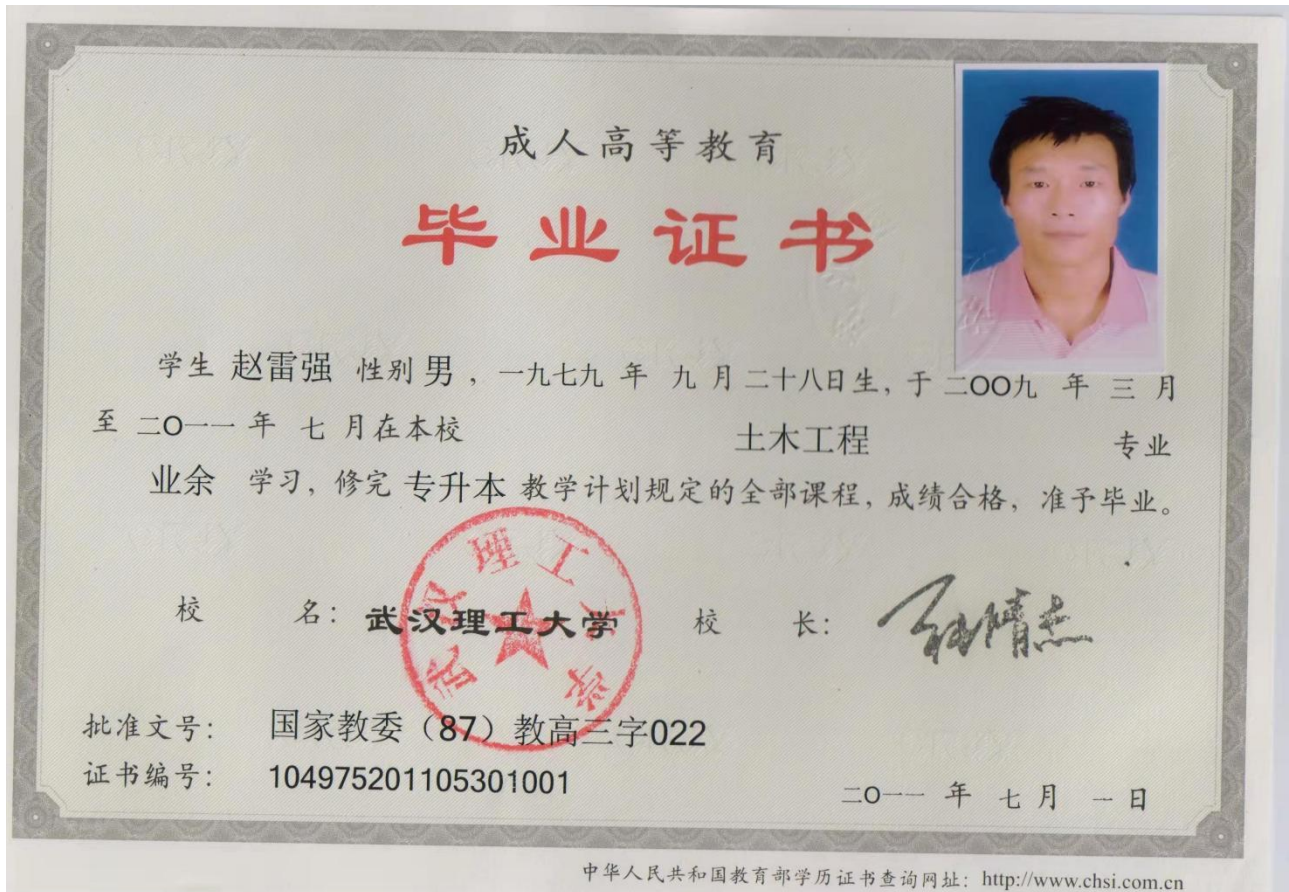 成人高等教育
毕业证书
学生 赵雷强 性别 男 ，一九七九 年 九 月 二十八日生，于 二〇〇九 年 三 月
至 二〇一一 年 七 月在本校 土木工程 专业
业余 学习，修完 专升本 教学计划规定的全部课程，成绩合格，准予毕业。
校 名：武汉理工大学 校 长：
武汉理工大学
批准文号： 国家教委（87）教高三字022
证书编号： 104975201105301001
二〇一一 年 七 月 一 日
中华人民共和国教育部学历证书查询网址：http://www.chsi.com.cn